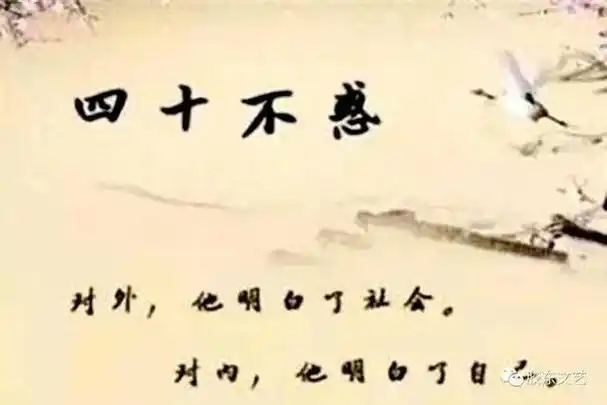 四十不惑
对外，他明白了社会。
对内，他明白了自己。
胶东文艺